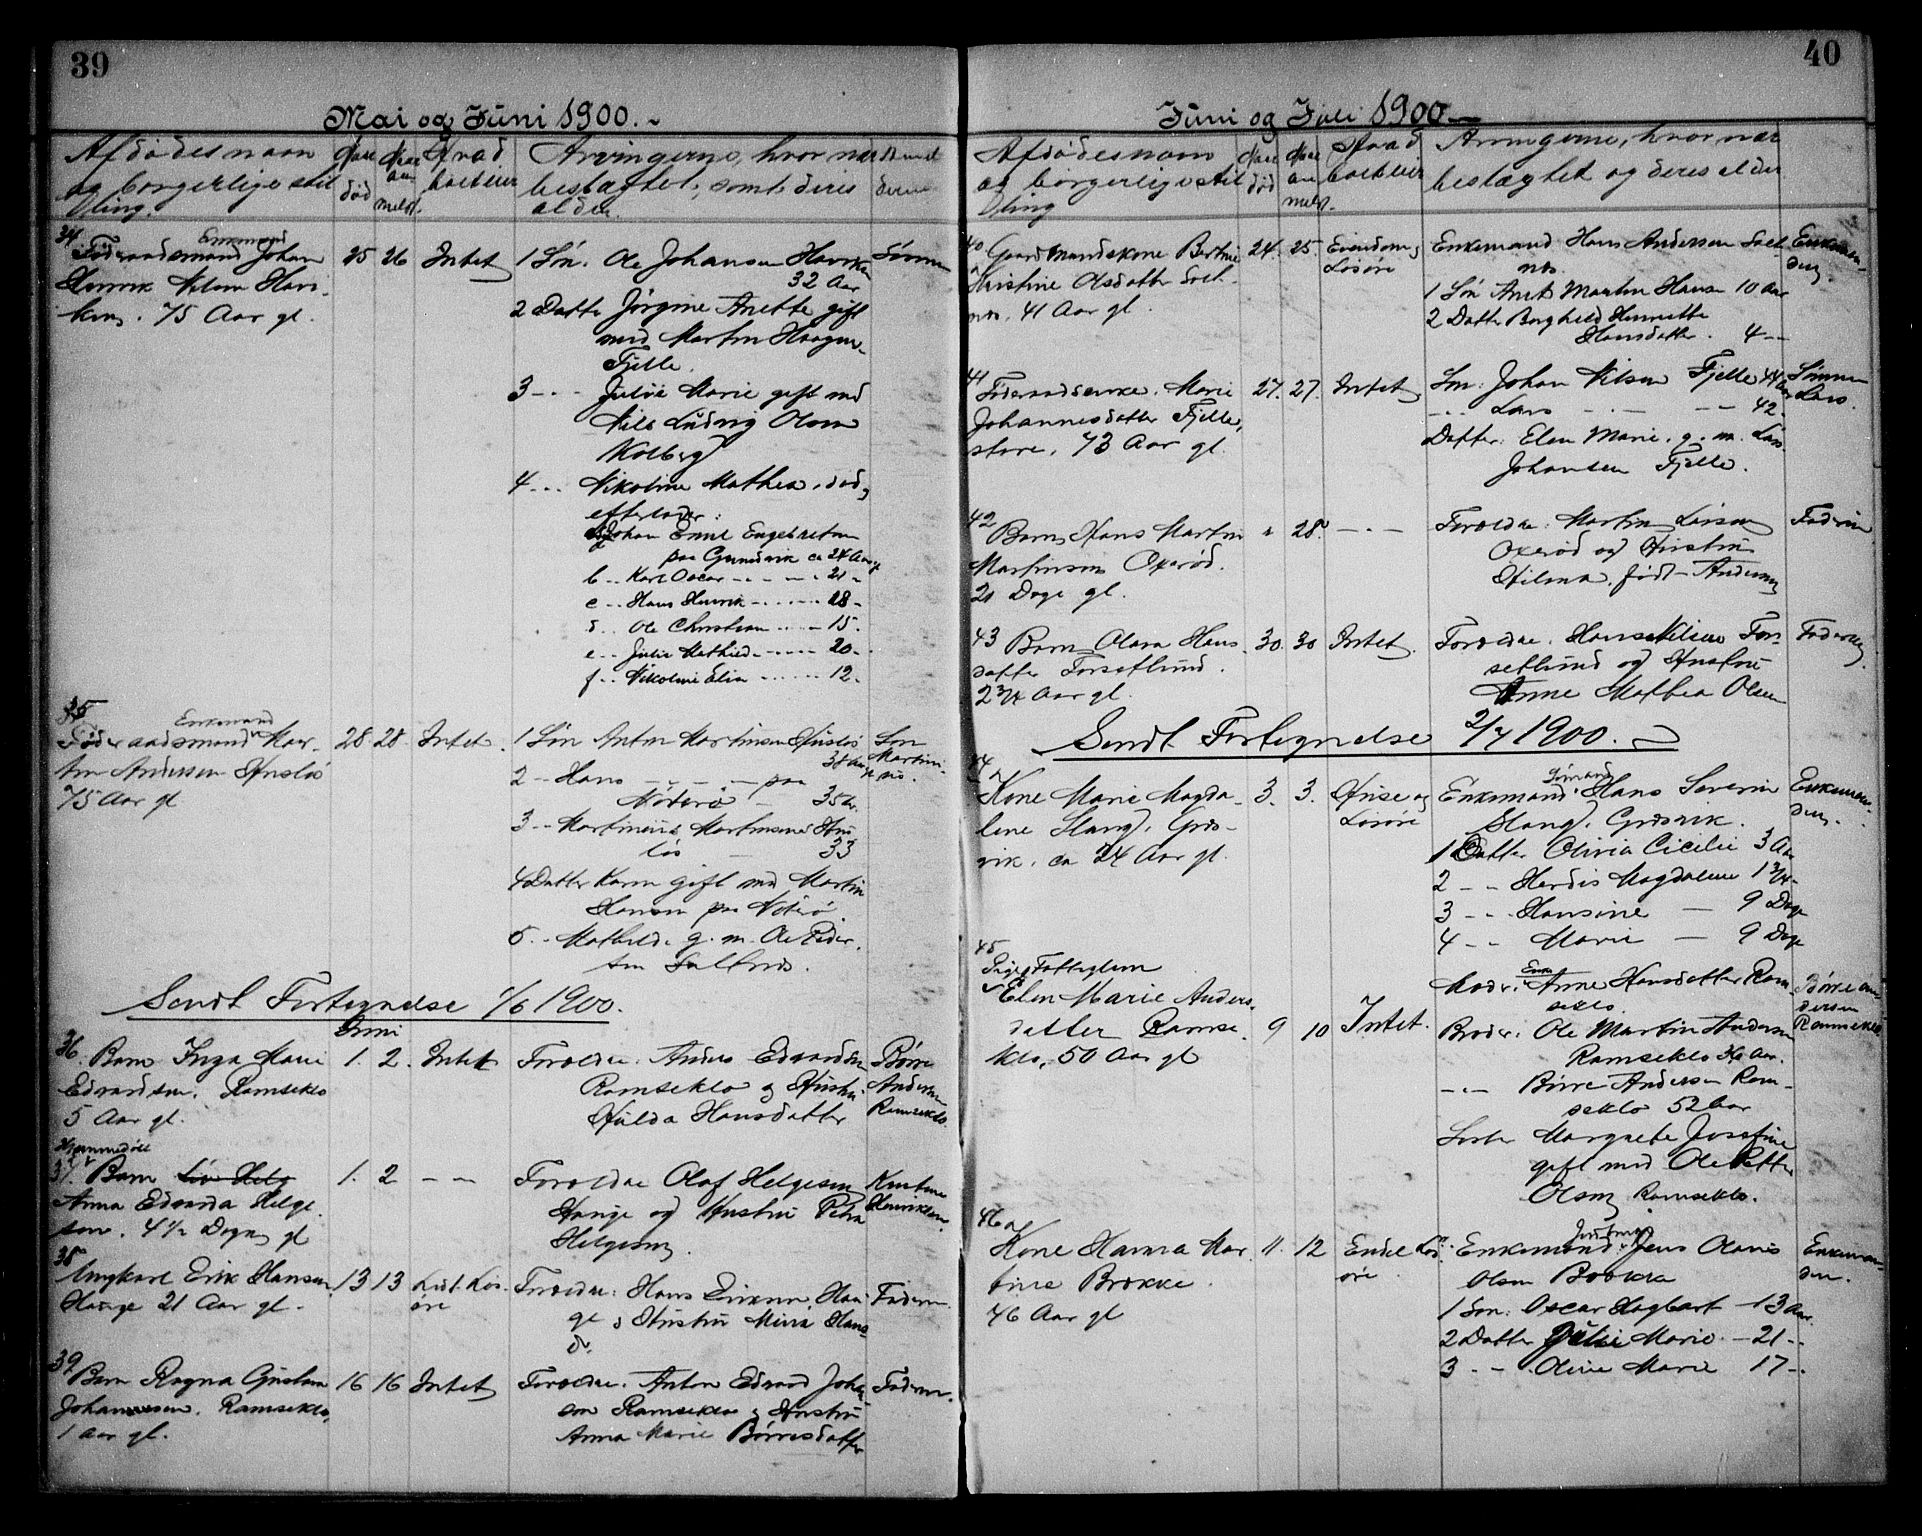 39
Mai og Juni 1900.
Afdødes navn
og borgerlige stil
ling.
Naar
død
Naar
an
meldt.
Hvad
boet eier
Arvingerne, hvor nær
beslægtet, samt deres
alder.
34
Enkemand
Føderaadsmand Johan
Henrik Nilsen Hav-
75 Aar gl.
25 26 Intet
1 Søn. Ole Johansen
32 Aar
Sønnen
2 Datter Jørgine Anette gift
med Martin Haagen-
Fjelle.
3 - - - Julie Marie gift med
Nils Ludvig Olsen
Kolberg
4 - - - Nikoline Mathea, død,
efterlader:
a Johan Emil Engebretsen
paa ca 24 Aar gl
b - - Karl Oscar - - - - 21 -
c - - Hans Henrik - - - - 18 -
d - - Ole Christian - - - 15.
e - - Julie Mathilde - - - 20 -
f - - Nikoline Elia - - - 12 -
35
Enkemand
Føderaadsmand Mar-
tin Andersen Husløs
75 Aar gl
28 28 Intet
1 Søn Anton Martinsen Husløs
38 Aar gl
Søn
Martini-
us.
2 - - Hans - - - - paa
Nøterø - 35 Aar.
3 - - Martinius Martinsen Hus
løs - 33
4 Datter Karen gift med Martin
Hansen paa Nøterø
5 - - Mathilde g. m. Ole Peder-
sen
Sendt Fortegnelse 1/6 1900.
Juni
36 Barn Inga Marie
Edvardsen. Ramseklo
5 Aar gl.
1. 2. Intet
Forældre: Anders Edvardsen
Ramseklo og Hustru
Hulda Hansdatter
Børre
Andersen
Ramseklo.
Hjemmedøbt
37. Barn
Anna Edvarda Helge
sen. 4 1/2 Døgn gl
1. 2 - -
Forældre Olaf Helgesen
Hauge og Hustru Petra
Helgesen
Kristine
Henriksen.
38
Ungkarl Erik Hansen
Hauge 21 Aar gl.
13 13 Lidt Løs-
øre
Forældre: Hans Eriksen Hau-
ge & Hustru Mina Hans
dr.
Faderen.
39
Barn Ragna Gustava
Johannesen. Ramseklo,
1 aar gl.
16 16 Intet
Forældre. Anton Edvard Johan-
sen Ramseklo & Hustru
Anna Marie Børresdatter
Faderen.
40
Juni og Juli 1900.
Afdødes navn
og borgerlige stil
ling
Naar
død
Naar
an
meldt.
Hvad
boet eier
Arvingerne, hvor nær
beslægtet og deres alder
40 Gaardmandskone Bertine
Kristine Olsdatter Solt-
nes. 41 Aar gl.
24. 25. Eiendom &
Løsøre
Enkemand Hans Andersen Solt
nes.
Enkeman-
den.
1 Søn Anet Martin Hansen 10 Aar
2 Datter Borghild Henriette
Hansdatter. 4 - -
41
Føderaadsenke. Marie
Johannesdatter Fjelle,
store. 73 Aar gl.
27. 27. Intet
Søn: Johan Nilsen Fjelle 44 Aar
- - - Lars - - - - - 42.
Datter: Elen Marie. g. m. Lars
Johansen Fjelle.
Sønnen
Lars.
42
Barn Hans Martin
Martinsen Oxerød.
21 Dage gl.
" 28. - - -
Forældre: Martin Larsen
Oxerød og Hustru
Hilma, født Andersen
Faderen
43 Barn Olava Hans
datter Torsetlund.
2 3/4 Aar gl.
30. 30 Intet.
Forældre. Hans Nilsen Tor-
setlund og Hustru
Anne Mathea Olsen
Faderen,
Sendt Fortegnelse 2/7 1900.
44
Kone Marie Magda-
lene Stang, Græs-
vik. ca 24 Aar gl.
3. 3. Huse og
Løsøre
Sømand
Enkemand Hans Severin
Stang. Græsvik.
Enkeman-
den.
1 Datter Olivia Cicilie 3 Aar
2 - - Herdis Magdalene 1 3/4 -
3 - - Hansine - 9 Dage
4 - - Marie - 9 Dage
45
Pige, Fattiglem
Elen Marie Anders-
datter Ramse-
klo, 50 Aar gl
9 10 Intet.
Enke
Moder. Anne Hansdatter Ram-
seklo.
Børre An-
dersen
Ramseklo
Broder. Ole Martin Andersen
Ramseklo Aar.
- - - Børre Andersen Ram-
seklo 52 Aar
Søster Margrete Josefine
gift med Ole Petter
Olsen Ramseklo.
46
Kone Hanna Mar-
tine Brække.
46 Aar gl
11. 12 Endel Løs-
øre
Enkemand Jens Olaus
Olsen Brække
Enkeman-
den.
1 Søn: Oscar Hagbart - 13 Aar.
2 Datter Julie Marie. - 21 - -
3 - - Oline Marie 17 - -